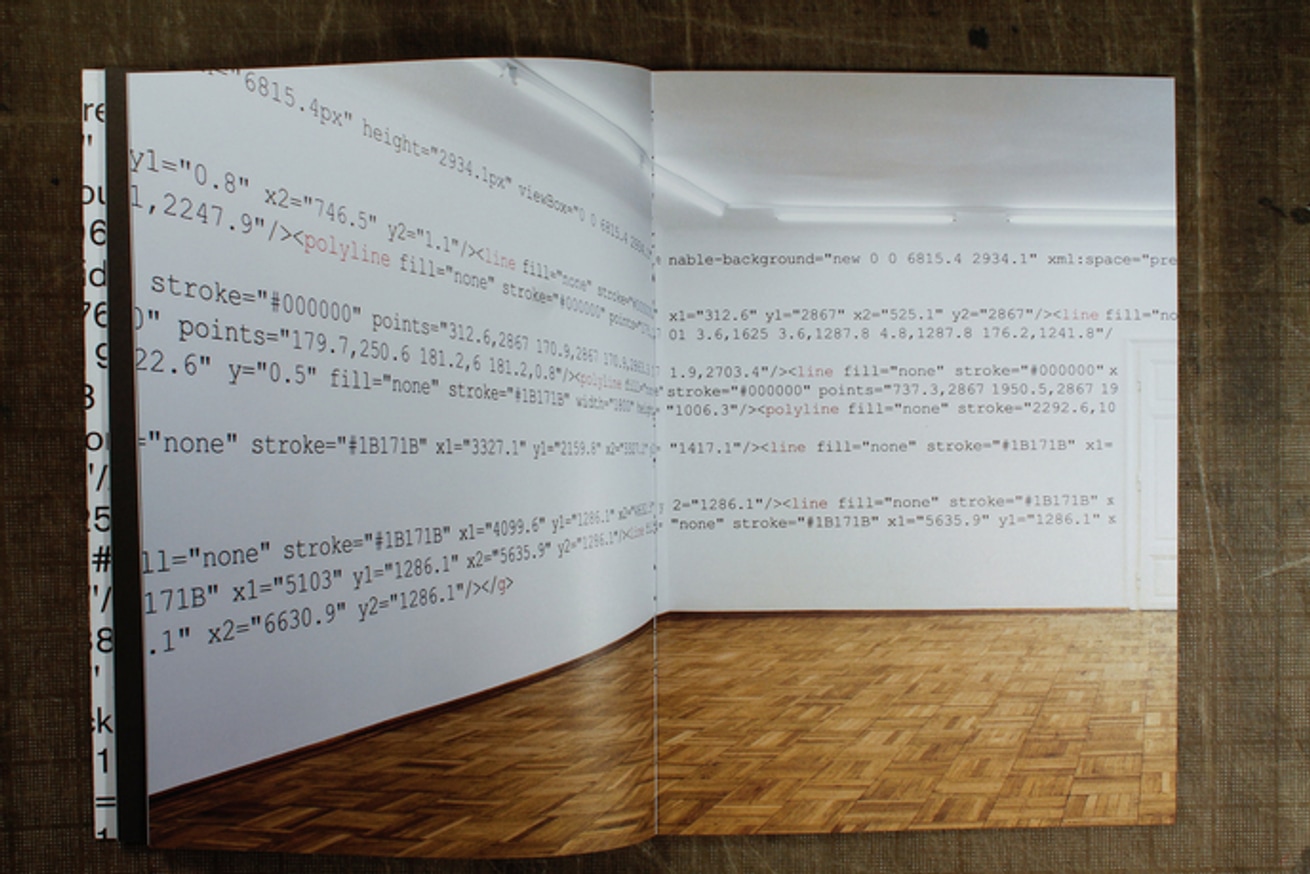 "6815.4px" height="2934.1px" viewBox="0 0 6815.4
y1="0.8" x2="746.5" y2="1.1"/><line fill="none"
1,2247.9"/><polyline fill="none" stroke="#000000"
stroke="#000000" points="312.6,2867 170.9,2867
0" points="179.7,250.6 181.2,6 181.2,0.8"/><polyline
22.6" y="0.5" fill="none" stroke="#1B171B"
="none" stroke="#1B171B" x1="3327.1" y1="2159.6"
ll="none" stroke="#1B171B" x1="4099.6" y1="1286.1"
171B" x1="5103" y1="1286.1" x2="5635.9" y2="1286.1"/>
.1" x2="6630.9" y2="1286.1"/></g>
nable-background="new 0 0 6815.4 2934.1" xml:space="pre
x1="312.6" y1="2867" x2="525.1" y2="2867"/><line fill="no
01 3.6,1625 3.6,1287.8 4.8,1287.8 176.2,1241.8"/
1.9,2703.4"/><line fill="none" stroke="#000000" x
stroke="#000000" points="737.3,2867 1950.5,2867 19
"1006.3"/><polyline fill="none" stroke="2292.6,10
"1417.1"/><line fill="none" stroke="#1B171B" x1=
2="1286.1"/><line fill="none" stroke="#1B171B" x
"none" stroke="#1B171B" x1="5635.9" y1="1286.1" x
re
"
ou
6
id
76
9
3
or
"/
25
#
"/
38
"
ck
1
=